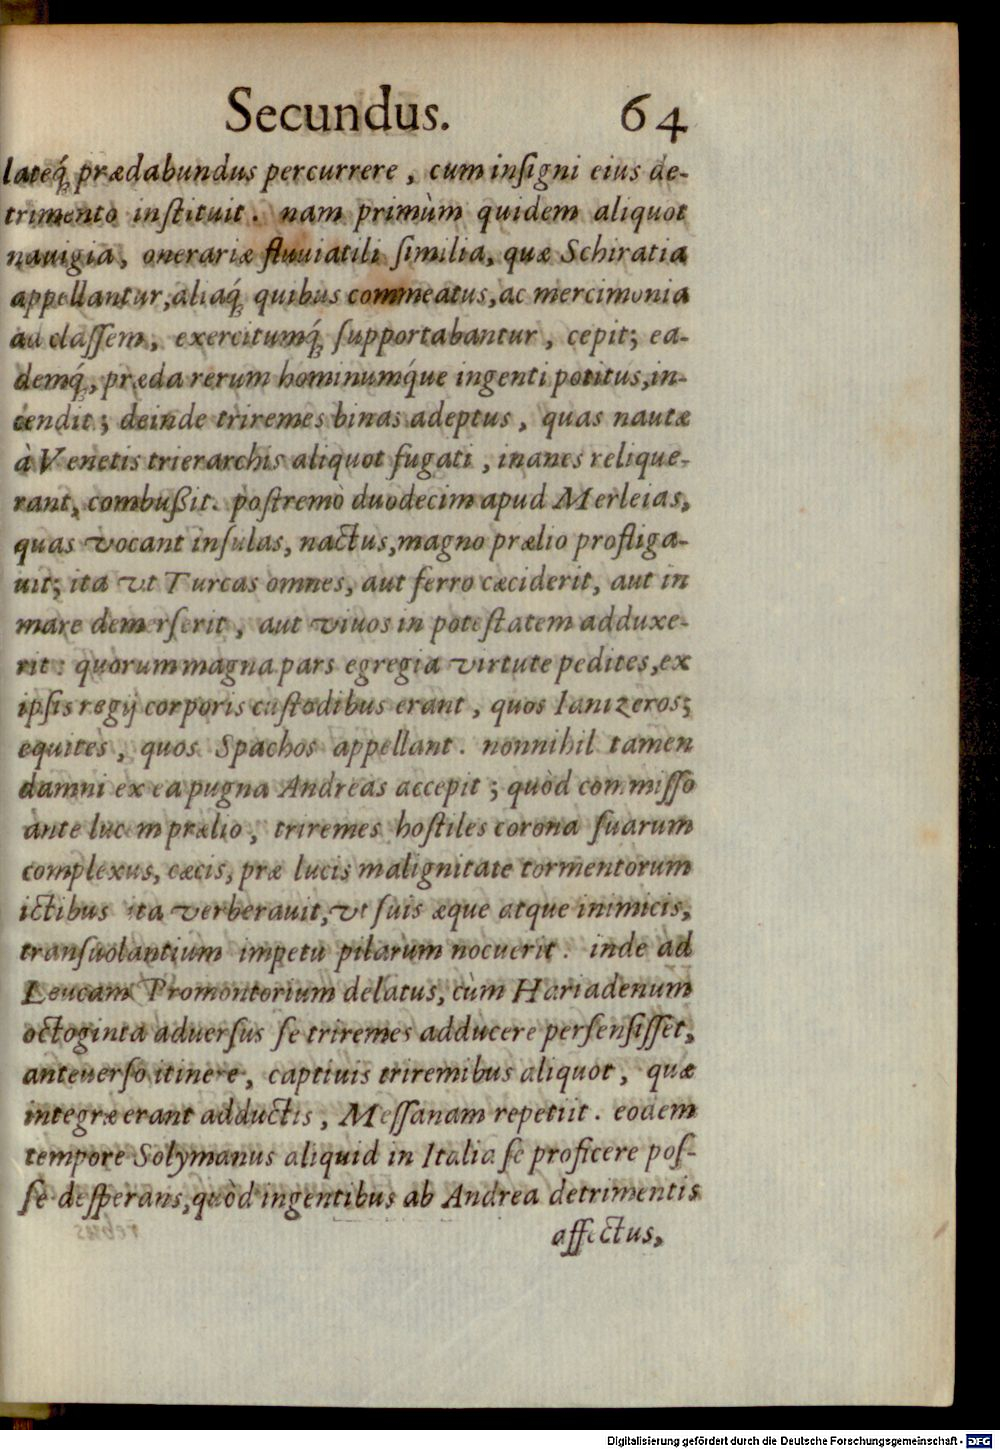 Secundus. 64
lateq́; prædabundus percurrere, cum inſigni eius de-
trimento inſtituit. nam primùm quidem aliquot
nauigia, onerariæ fluuiatili ſimilia, quæ Schiratia
appellantur, aliaq́; quibus commeatus, ac mercimonia
ad claſſem, exercitumq́; ſupportabantur, cepit; ea-
demq́;, præda rerum hominumq́ue ingenti potitus, in-
cendit; deinde triremes binas adeptus, quas nautæ
à Venetis trierarchis aliquot fugati, inanes relique-
rant, combußit. poſtremò duodecim apud Merleias,
quas vocant inſulas, nactus, magno prælio profliga-
uit; ita vt Turcas omnes, aut ferro cæciderit, aut in
mare demerſerit, aut viuos in poteſtatem adduxe-
rit: quorum magna pars egregia virtute pedites, ex
ipſis regij corporis cuſtodibus erant, quos Ianizeros;
equites, quos Spachos appellant. nonnihil tamen
damni ex ea pugna Andreas accepit; quòd commiſſo
ante lucem prælio, triremes hoſtiles corona ſuarum
complexus, cæcis, præ lucis malignitate tormentorum
ictibus ita verberauit, vt ſuis æque atque inimicis,
tranſuolantium impetu pilarum nocuerit. inde ad
Leucam Promontorium delatus, cùm Hariadenum
octoginta aduerſus ſe triremes adducere perſenſiſſet,
anteuerſo itinere, captiuis triremibus aliquot, quæ
integræ erant adductis, Meſſanam repetiit. eodem
tempore Solymanus aliquid in Italia ſe proficere poſ-
ſe deſperans, quòd ingentibus ab Andrea detrimentis
affectus,
Digitalisierung gefördert durch die Deutsche Forschungsgemeinschaft - DFG